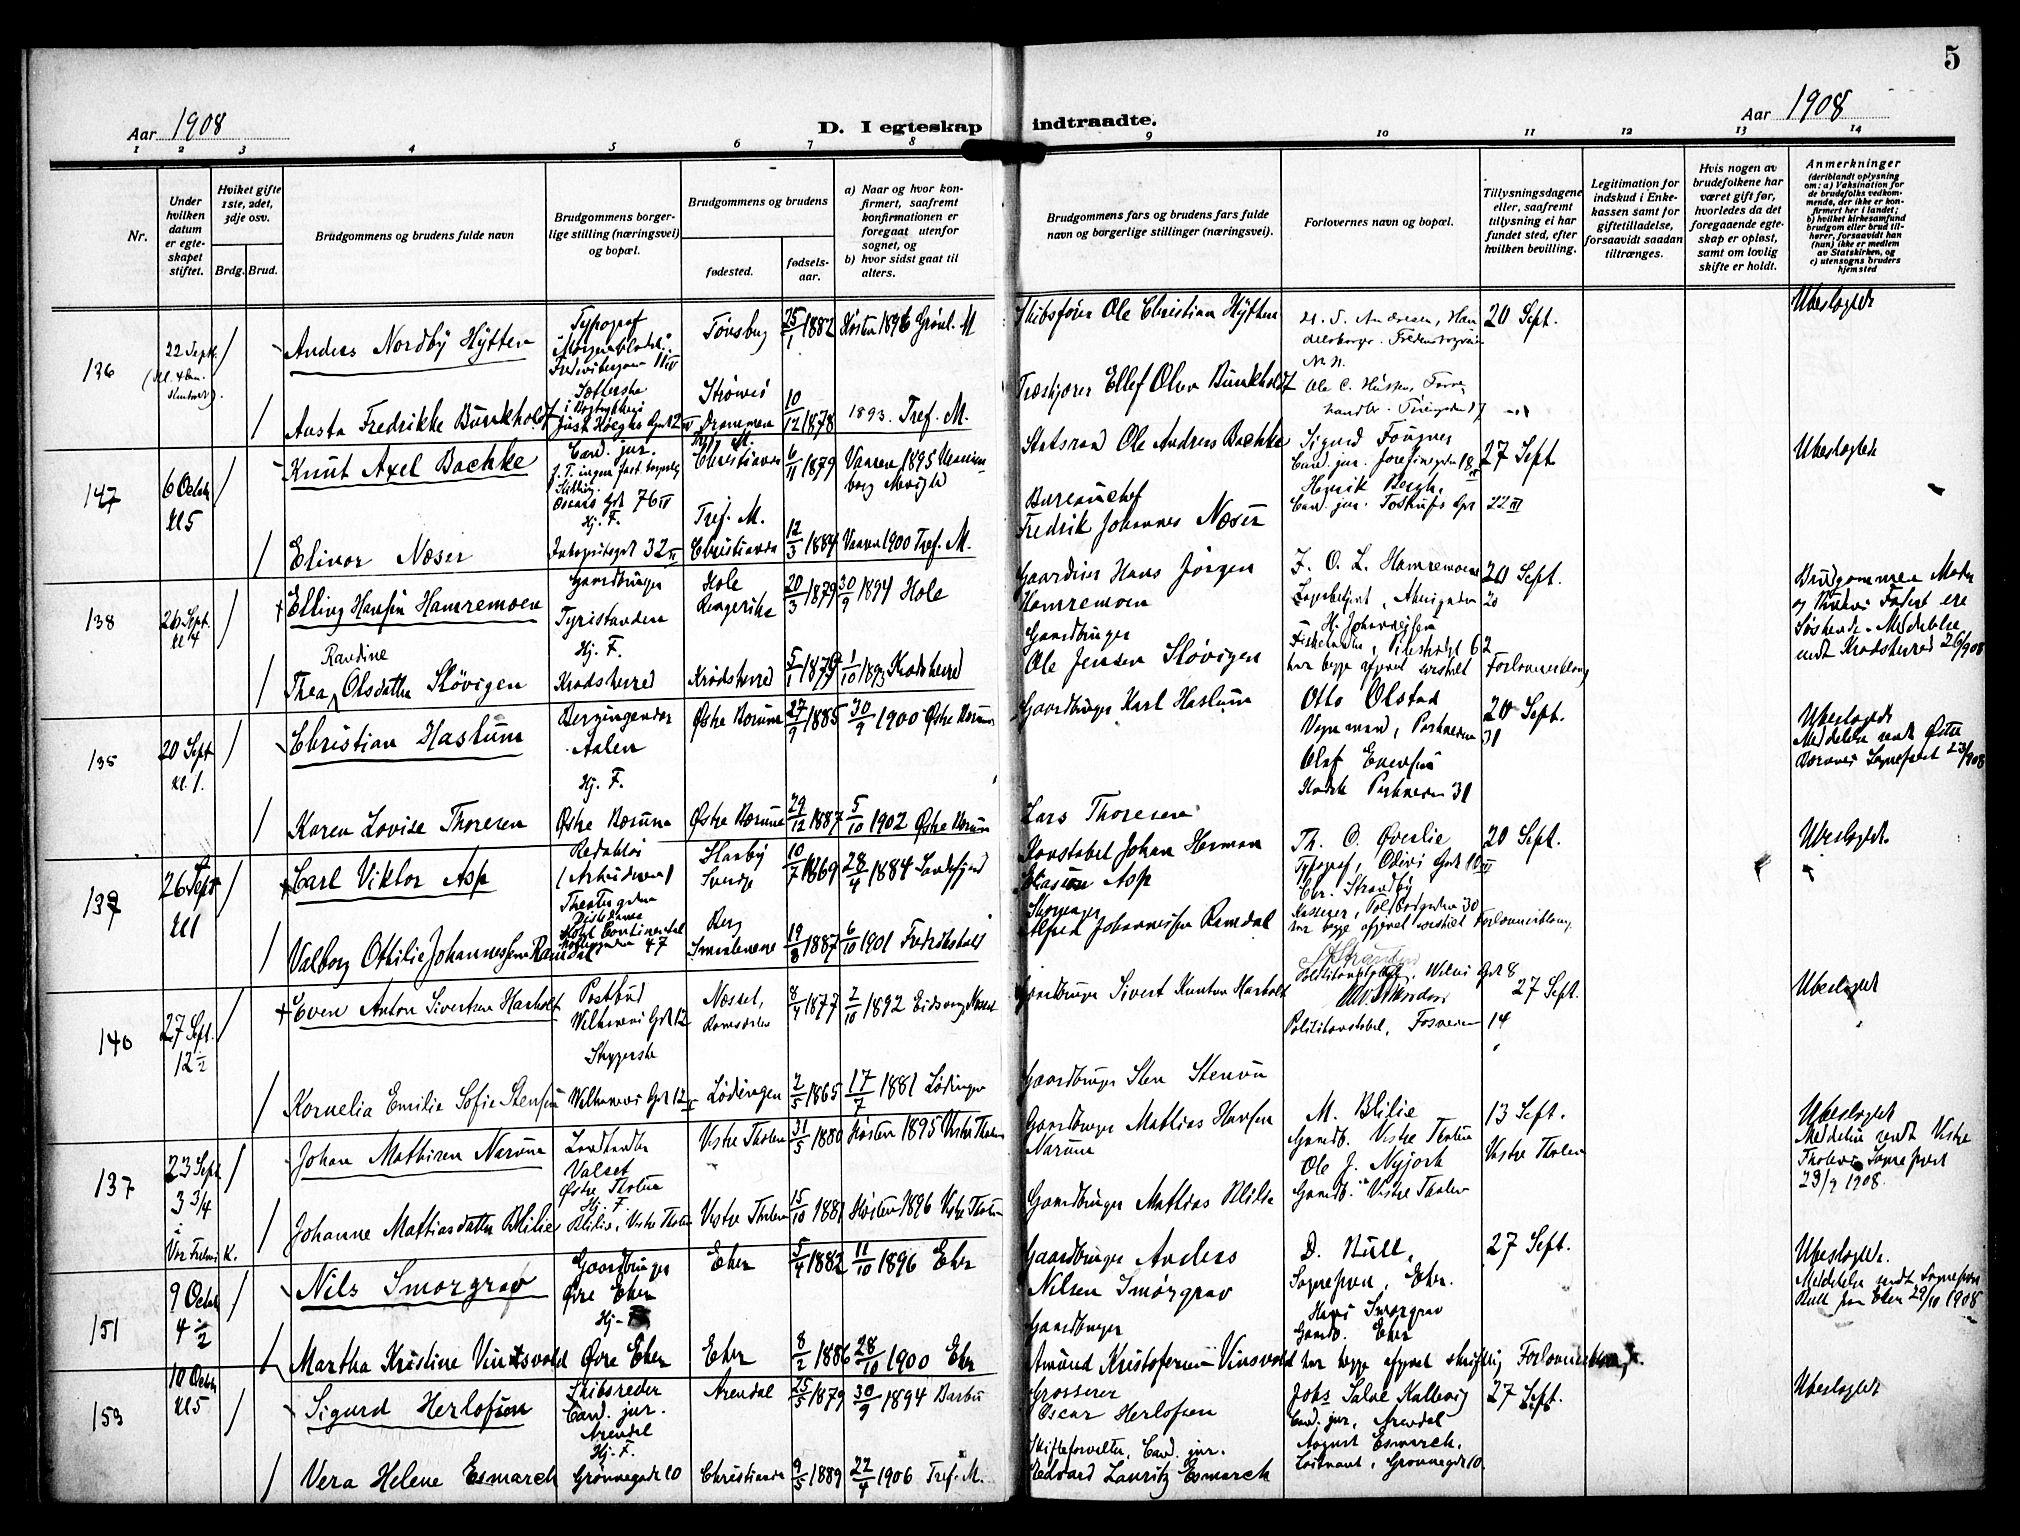 5
Aar 1908
D. I egteskap indtraadte.
Aar 1908
1 2 3 4 5 6 7 8 9 10 11 12 13 14
Nr.
Under hvilken datum er egteskapet stiftet.
Hviket gifte 1ste, 2det, 3dje osv.
Brdg. Brud.
Brudgommens og brudens fulde navn
Brudgommens borgerlige stilling (næringsvei) og bopæl.
Brudgommens og brudens
fødested.
fødselsaar.
a) Naar og hvor konfirmert, saafremt konfirmationen er foregaat utenfor sognet, og
b) hvor sidst gaat til alters.
Brudgommens fars og brudens fars fulde navn og borgerlige stillinger (næringsvei).
Forlovernes navn og bopæl.
Tillysningsdagene eller, saafremt tillysning ei har fundet sted, efter hvilken bevilling.
Legitimation for indskud i Enkekassen samt for giftetilladelse, forsaavidt saadan tiltrænges.
Hvis nogen av brudefolkene har været gift før, hvorledes da det foregaaende egteskap er opløst, samt om lovlig skifte er holdt.
Anmerkninger (deriblandt oplysning om: a) Vaksination for de brudefolks vedkommende, der ikke er konfirmert her i landet; b) hvilket kirkesamfund brudgom eller brud tilhører, forsaavidt han (hun) ikke er medlem av Statskirken, og c) utensogns bruders hjemsted
136
22 Sept.
Anders Nordby Hytten
Typograf
Tønsberg
25/1 1882
Høsten 1896 Grønl. M
Skibsfører Ole Christian Hytten
20 Sept.
Ubeslogtede
Austa Fredrikke Bunkholdt
Strømsø Drammen
10/12 1878
1893. Tref. M.
Ellef Olsen Bunkholdt
147
6 Octob kl 5
Knut Axel Bachke
Cand. jur.
Oscars Gd 76 IV
Hj. F.
Christiania
6/11 1879
Vaaren 1895
Statsraad Ole Andreas Bachke
Sigurd Fougner
Cand. jur. Josefinegden 18
Henrik Bergh,
Cand. jur.
27 Sept.
22 III
Ubeslogtede
Elinor Næser
32 II
Tref. M.
Christiania
12/3 1884
Vaaren 1900 Tref. M.
Bureauchef
Fredrik Johannes Næser
138
26 Sept. kl 4
Elling Hansen Hamremoen
Gaardbruger
Tyristranden
Hj. F.
Hole Ringerike
20/3 1879
30/9 1894 Hole
Gaardeier Hans Jørgen
Hamremoen
20 Sept.
Brudgommens Moder
og Brudens Fader ere
Søskende. Meddelelse
sendt Krødsherred 26/9 08
Randine
Thea Olsdatter Støvigen
Krødsherred
Krødsherred
5/1 1879
1/10 1893 Krødsherred
Gaardbruger
Ole Jensen Støvigen
har begge afgivet særskilt Forlovererklæring
135
20 Sept kl. 1.
Christian Haslum
Bergingeniør
Aalen
Hj. F.
Østre Bærum
27/9 1885
30/9 1900 Østre Bærum
Gaardbruger Karl Haslum
Otto Olstad
Vognmand, Parkveien 31
Olaf Enersen
Kusk Parkveien 31
20 Sept.
Ubeslogtede
Meddelelse sendt Østre
Bærums Sogneprest 23/9 08
Karen Lovise Thoresen
Østre Bærum
Østre Bærum
29/12 1887
5/10 1902 Østre Bærum
Lars Thoresen
139
26 Sept kl 1
Carl Viktor Asp
Redaktør
Sverige
10/7 1869
28/4 1884 Sandefjord
Konstabel Johan Herman
Eliasen Asp
Th. O. Øverlie
Typograf,
Chr. Strandby
Kasserer,
20 Sept.
Ubeslogtede
Valborg Othilie Johannessen Ramdal
Hotel Continental
47
Berg
Smaalenene
19/8 1887
6/10 1901 Fredrikshald
Skomager
Alfred Johannessen Ramdal
har begge afgivet særskilt Forlovererklæring
140
27 Sept. 12 1/2
Even Anton Sivertsen Harholt
Postbud
Wilhelms Gd 12
Nesset, Romsdalen
8/4 1877
2/10 1892 Eidsvaag Nesset
Gaardbruger Sivert Knutson Harholt
Politikonstabel,
27 Sept.
Ubeslogtede
Politikonstabel, Fossveien 14
Kornelia Emilie Sofie Stensen
Wilhelms Gd 12
Lødingen
2/5 1865
17/7 1881 Lødingen
Gaardbruger Sten Stensen
137
23 Sept 3 3/4
i Vor Frelsers K.
Johan Mathisen Narum
Landhandler
Valset
Østre Thoten
Hj. F.
Vestre Thoten
31/5 1880
Høsten 1895 Vestre Thoten
Gaardbruger Mathias Hansen
Narum
M. Blilie
Gaardb. Vestre Thoten
Ole J. Nyjork
Gaardb. Vestre Thoten
13 Sept.
Vestre Thoten
Ubeslogtede
Meddelelse sendt Vestre
Thotens Sogneprest
23/9 1908.
Johanne Mathiasdatter Blilie
Blilie, Vestre Thoten
Vestre Thoten
15/10 1881
Høsten 1896 Vestre Thoten
Gaardbruger Mathias Blilie
151
9 Octob 4 1/2
Nils Smørgrav
Gaardbruger
Øvre Eker
Hj. F.
Eker
5/4 1882
11/10 1896 Eker
Gaardbruger Anders
Nilsen Smørgrav
D. Bull,
Sogneprest, Eker.
Hans Smørgrav
Gaardb. Eker
27 Sept.
Ubeslogtede.
Meddelelse sendt Sogneprest
Bull paa Eker 29/10 1908
Martha Kristine Vinsvold
Øvre Eker
Eker
8/2 1886
28/10 1900 Eker
Gaardbruger
Amund Kristofersen Vinsvold
har begge afgivet skriftlig Forlovererklæring.
153
10 Octob kl 5
Sigurd Herlofson
Skibsreder
Cand. jur.
Arendal
Hj. F.
Arendal
25/5 1879
30/9 1894 Barbu
Grosserer
Oscar Herlofsen
Johs Salve Kallevig
Cand. jur, Arendal
August Esmarch.
Løitnant, Grønnegade 10.
27 Sept.
Ubeslogtede
Vera Helene Esmarch
Grønnegade 10
Christiania
9/5 1889
22/4 1906 Tref. M.
Skifteforvalter, Cand. jur.
Edvard Lauritz Esmarch